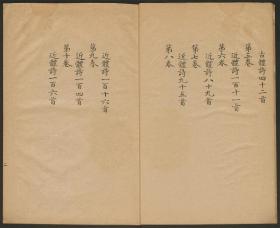 古體詩四十二首
第五卷
近體詩一百十一首
第六卷
近體詩八十九首
第七卷
近體詩九十五首
第八卷
近體詩一百十六首
第九卷
近體詩一百四首
第十卷
近體詩一百六首